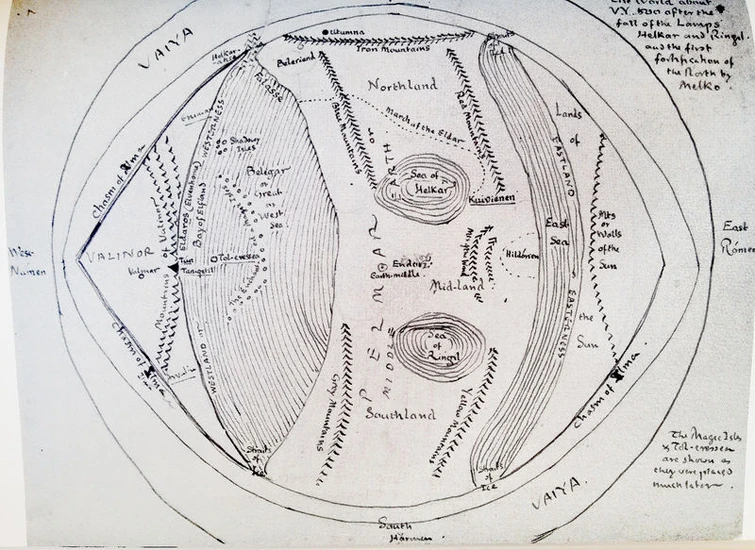 The World about
V.Y. 500 after the
fall of the Lamps
Helkar and Ringil
and the first
fortification of
the North by
Melko.
VAIYA
Utumna
Iron Mountains
Straits of Ice
Helkar-
Beleriand
Northland
FALASSE
Blue Mountains
March of the Eldar
Red Mountains
Lands
of
EASTLAND
WESTERNESS
Shadowy
Isles
Belegar
or
Great
West
Sea
or
EARTH
Sea of
Helkar
Kuiviénen
Chasm of Ilma
Mountains of Valinor
Eldaros (Elvenhome)
Bay of Elfland
The Enchanted
West
Numen
VALINOR
Valmar
Tún
Taniquetil
Tol-eressea
Endor
Earth-middle
Mid-land
Hildórien
East
Sea
Mts
or
Walls
of the
Sun
East
Rómen
PELMAR
MIDDLE
Sea
of
Ringil
the
Sun
EASTERNESS
Chasm of Ilma
WESTLAND
Grey Mountains
Southland
Yellow Mountains
Chasm of Ilma
Straits
of
Ice
Straits
of
Ice
VAIYA.
South
Harmen
The Magic Isles
& Tol-eressea
are shown as
they were placed
much later.